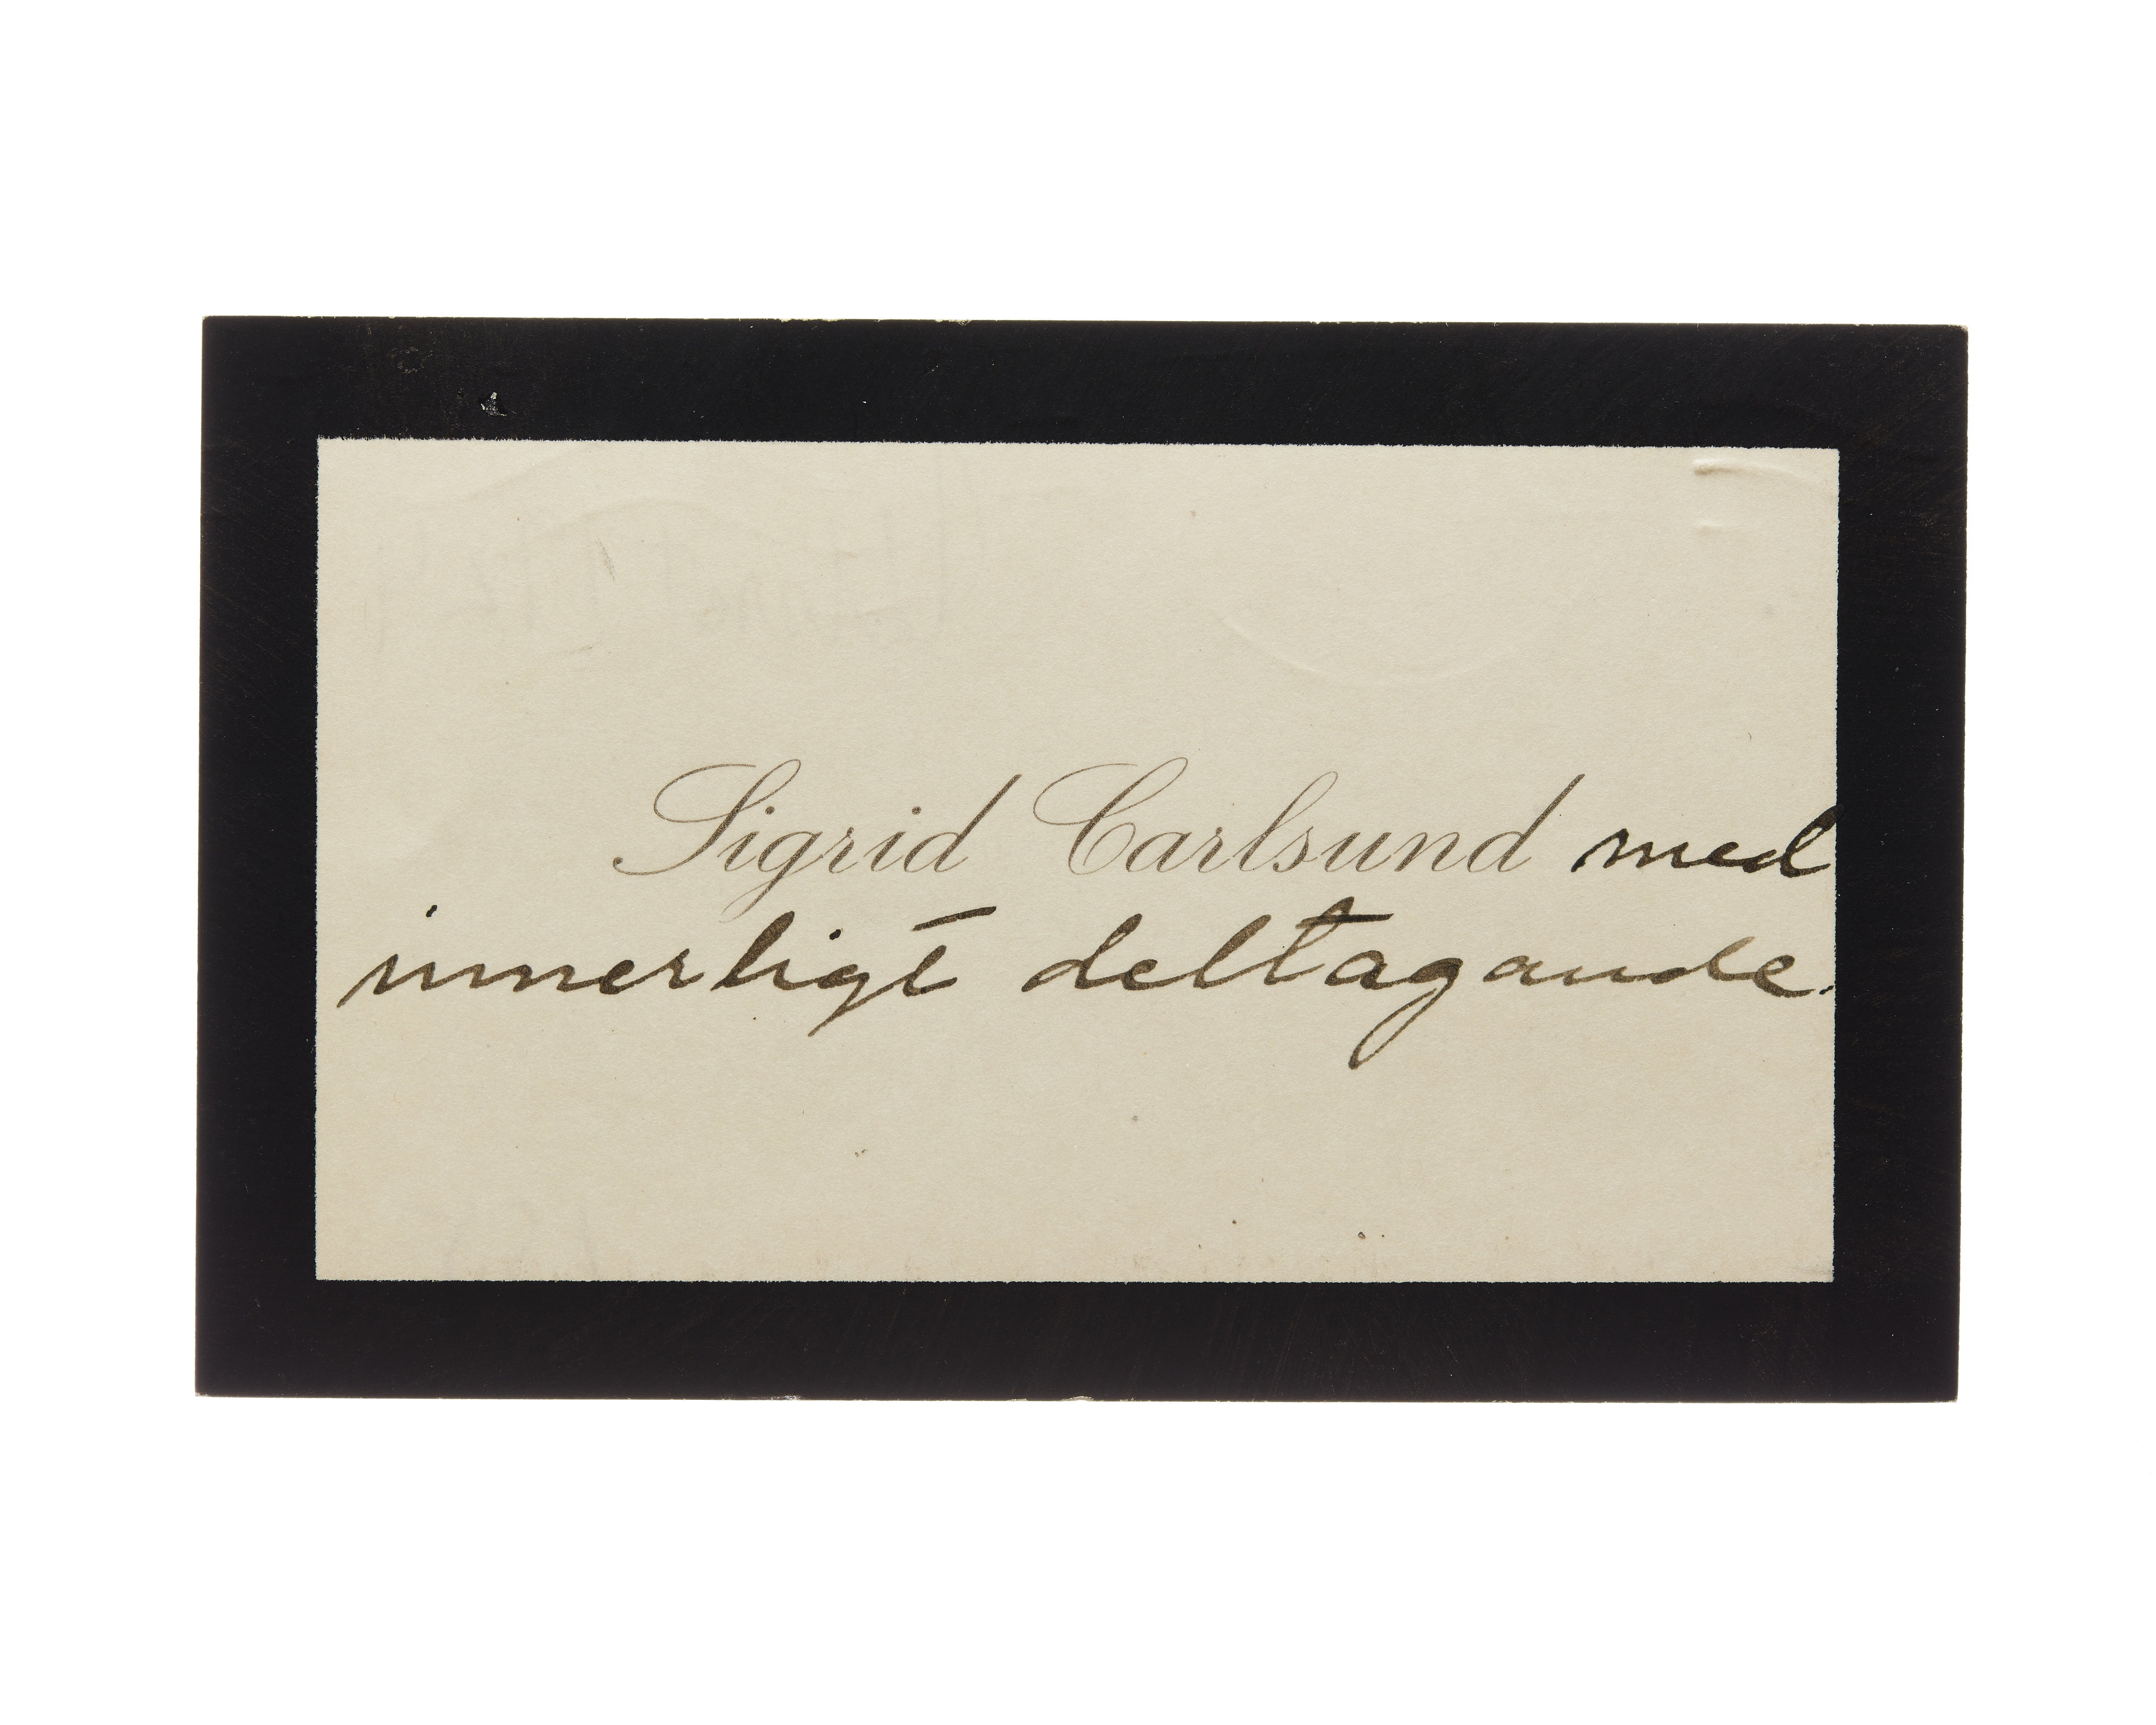 Sigrid Carlsund med
innerligt deltagande.